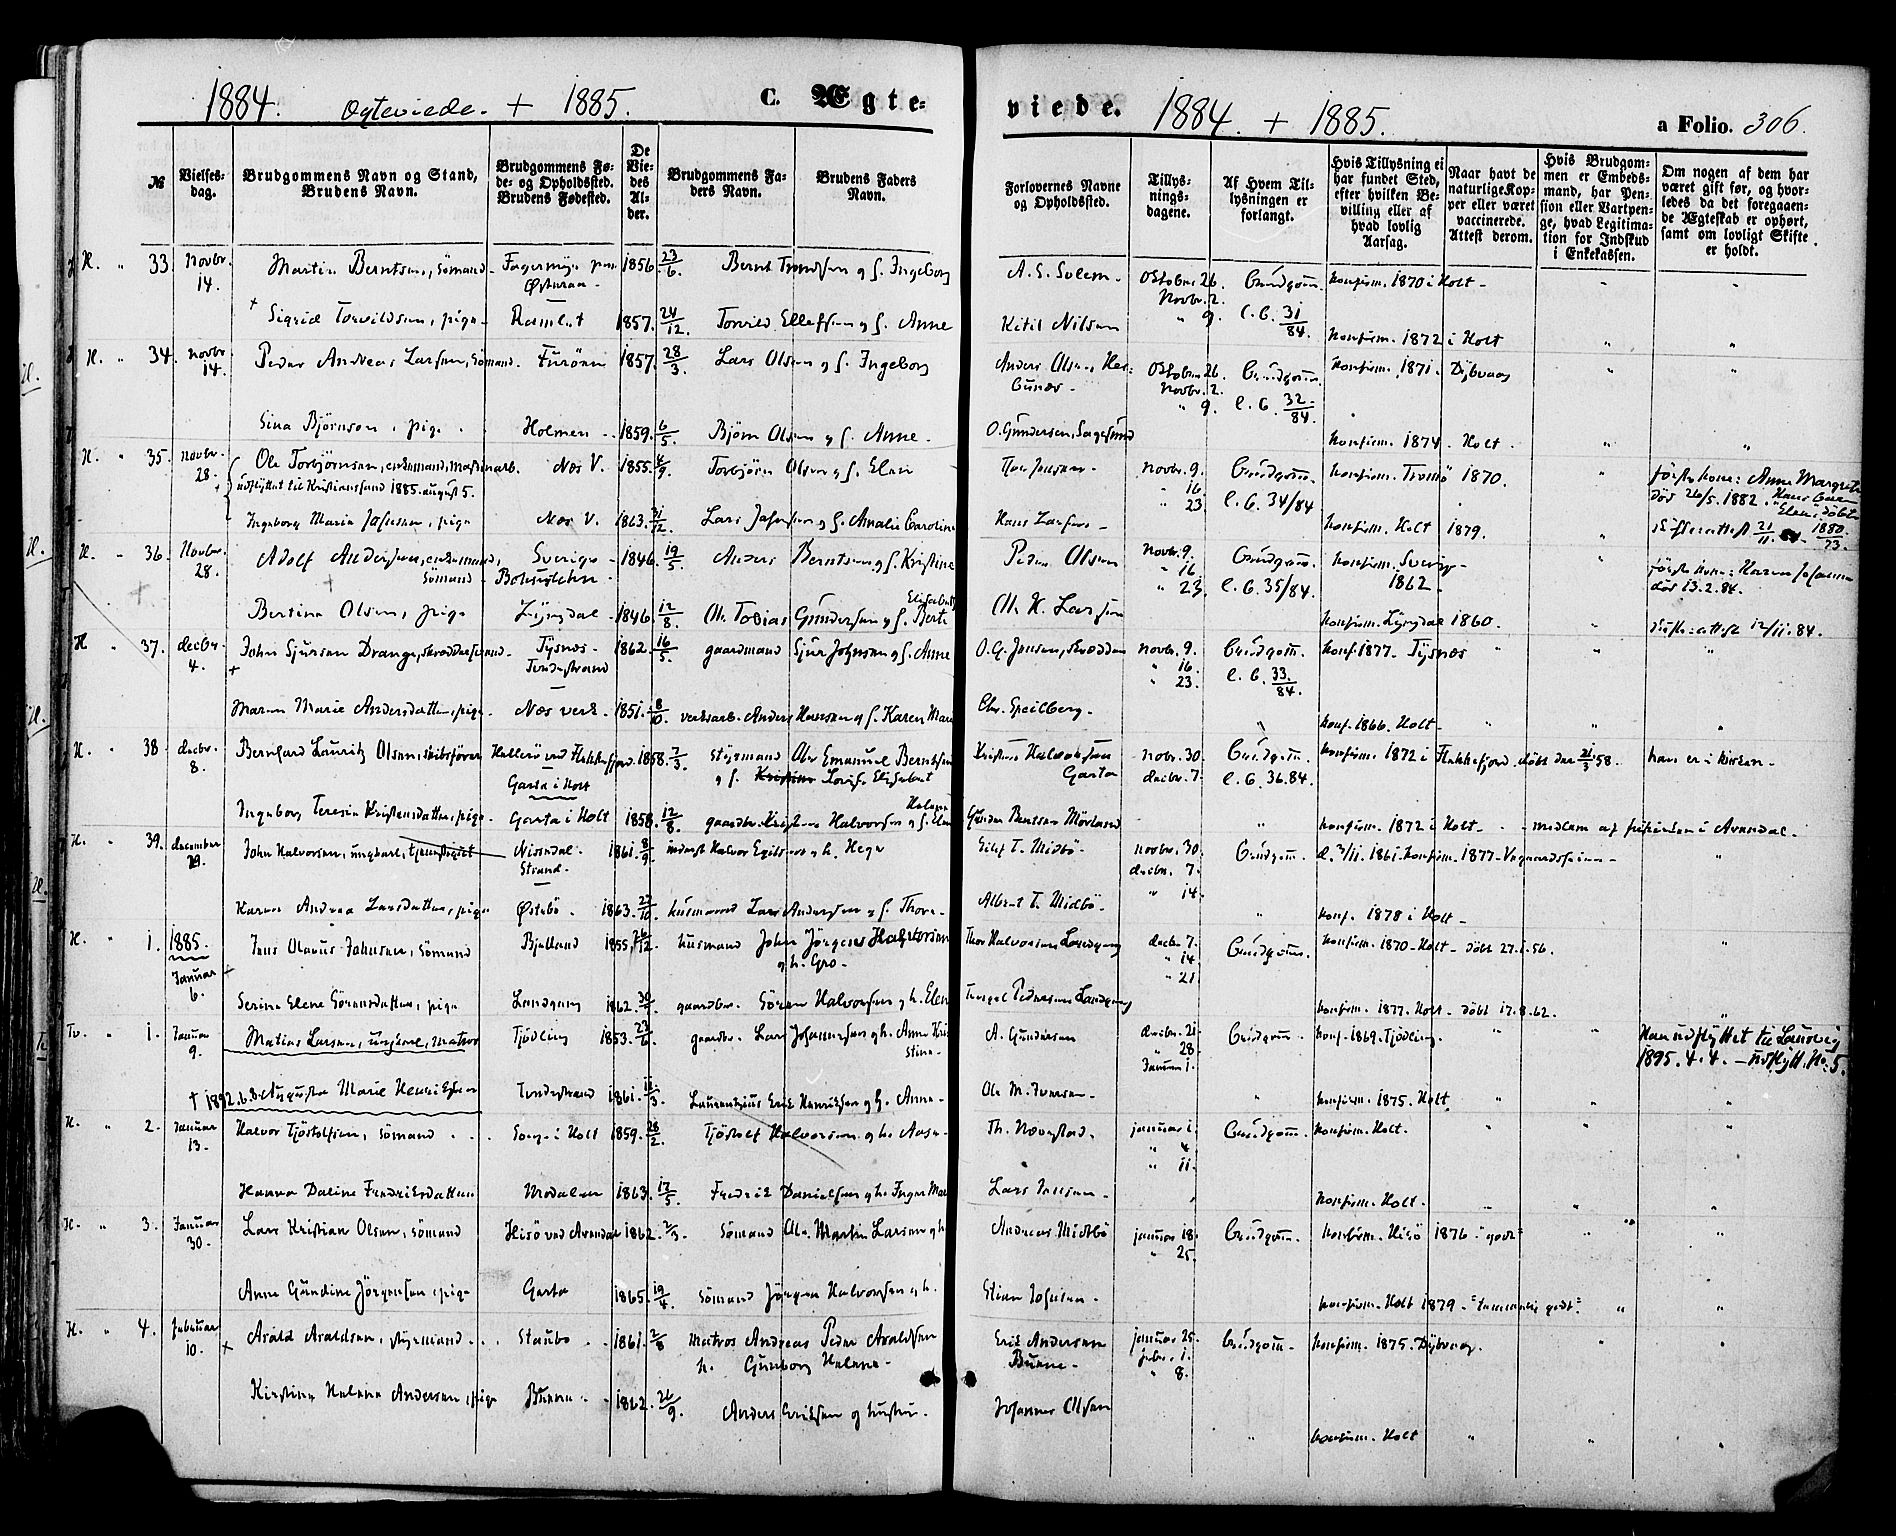 1884. Ogteviede. + 1885. C. Ægte-
viede. 1884. + 1885. a Folio. 306.
№
Vielses-
dag.
Brudgommens Navn og Stand,
Brudens Navn.
Brudgommens Fø-
de- og Opholdssted.
Brudens Fødested.
De
Vie-
des
Al-
der.
Brudgommens Fa-
ders Navn.
Brudens Faders
Navn.
Forlovernes Navne
og Opholdssted.
Tillys-
nings-
dagene.
Af Hvem Til-
lysningen er
forlangt.
Hvis Tillysning ei
har fundet Sted,
efter hvilken Be-
villing eller af
hvad lovlig
Aarsag.
Naar havt de
naturlige Kop-
per eller været
vaccinerede.
Attest derom.
Hvis Brudgom-
men er Embeds-
mand, har Pen-
sion eller Vartpen-
ge, hvad Legitima-
tion for Indskud
i Enkekassen.
Om nogen af dem har
været gift før, og hvor-
ledes da det foregaaen-
de Ægteskab er ophørt,
samt om lovligt Skifte
er holdt.
H. " 33. Novbr. 14. Martin Berntsen, Sømand - 1856. 23/6. Bernt Trondsen og h. Ingeborg A. S. Solem - Oktober 26. Brudgom. Konfirm. 1870 i Holt -
Novbr. 2.
+ Sigrid Torvildsen, pige - Ramlet 1857. 24/12. Torvild Ellefsen og h. Anne Kitil Nilsen " 9. l. B. 31/84. Konfirm. 1872 i Holt
H. " 34. Novbr. 14. Peder Andreas Larsen, Sømand. Furöen 1857. 28/3. Lars Olsen og h. Ingeborg Anders Olsen Oktober 26. Brudgom. Konfirm. 1871. Dybvaag
Novbr. 2.
" 9. l. B. 32/84.
Sina Björnsen, pige Holmen - 1859. 6/5. Bjørn Olsen og h. Anne - O. Gundersen, Sagesund Konfirm. 1874 - Holt.
H. " 35. Novbr. 28. Ole Torbjörnsen, enkemand, Maskinarb. Næs V. 1855. 4/9. Torbjörn Olsen og h. Elen Novbr. 9. Brudgom. Konfirm. Tromö 1870. første kone: Anne Margrete
udflyttet til Kristianssand 1885. august 5. " 16. død 26/5. 1882.
" 23. l. B. 34/84
Ingeborg Maria Johnsen, pige Næs V. 1863. 31/12. Lars Johnsen og h. Amalie Caroline Hans Larsen - Konfirm. Holt 1879. skifteattest 21/11.
H. " 36. Novbr. 28. Adolf Andersen, enkemand, Sverige - 1846. 19/5. Anders Berntsen og h. Kristine Peder Olsen Novbr. 9. Brudgom. Konfirm. Sverige - første kone: Karen Johanne
Sømand - Bohuslehn - " 16. 1862. død 13.2.84.
" 23. l. B. 35/84.
Bertine Olsen, pige Lyngdal - 1846. 12/8. Ole Tobias Gundersen og h. Berte Elisabeth Ole K. Larsen Konfirm. Lyngdal 1860. skifteattest 12/11. 84.
H " 37. Decbr. 4. John Sjursen Drange, skræddersvend. Tysnes - 1862. 16/5. gaardmand Sjur Johnsen og h. Anne O. G. Jensen, skrædder Novbr. 9. Brudgom. Konf. 1877. Tysnes
+ Tvedestrand " 16.
" 23. l. B. 33/84.
Maren Marie Andersdatter, pige. Næs verk - 1851. 8/10. verksarb. Anders Hansen og h. Karen Marie Chr. Speilberg - Konf. 1866. Holt -
H. " 38 Decbr. 8. Bernhard Lauritz Olsen, skibsfører 1858. 7/3. styrmand Ole Emanuel Berntsen Kristen Halvorsen Novbr. 30 Brudgom. Konfirm. 1872 i Flekkefjord, døbt den 21/3 58. han er i kirken -
Garta i Holt og h. Elisabet Garta Decbr. 7. l. B. 36.84.
Ingeborg Teresia Kristensdatter, pige. Garta i Holt 1858. 12/8. gaardbr. Kristen Halvorsen og h. Elen Gunder Bentsen Mörland Konfirm. 1872 i Holt - medlem af frikirken i Arendal -
H. " 39. December 29. John Halvorsen, ungkarl, Nissedal - 1861. 8/9. inderst Halvor Egilsen og h. Hege Eilef T. Midbö - Novbr. 30. Brudgom. d. 3/11. 1861. Konfirm. 1877 -
Strand - Decbr. 7.
" 14.
Karen Andrea Larsdatter, pige Østebö. 1863. 23/10. husmand Lars Andersen og h. Thore - Albert T. Midbö. Konf. 1878 i Holt -
H. " 1. 1885. Januar 6. Jens Olaves Johnsen, Sømand Bjelland 1855. husmand John Jörgens og h. Gro - Thor Halvorsen Landgang Decbr 7. Brudgom. Konfirm. 1870 - Holt - døbt 27.1.56.
" 14.
" 21
Serina Elene Sörensdatter, pige Landgang 1862. 30/6. gaardbr. Sören Halvorsen og h. Elen Pedersen Landgang Konfirm. 1877. Holt - døbt 17.8.62.
Tv. " 1. Januar 9. Matias Larsen, ungkarl, Matros Tjödling 1853. 23/6. gaardbr. Lars Johannesen og h. Anne Kristine - A. Gundersen Decbr. 21. Brudgom - Konf. 1869. Tjödling. Han udflyttet til Laurvig
" 28. 1895. 4. 4. - Udflytt. No. 5.
Januar 1.
† 1892. 6. 3. Augusta Marie Henriksen Tvedestrand 1861. 11/3. Laurentzius Erik Henriksen og h. Anne - Ole M. Iversen - Konfirm. 1875. Holt.
H. " 2. Januar 13. Halvor Tjöstolfsen, Sømand. Songe i Holt 1859. 28/2. Tjöstolf Halvorsen og h. Aase - Th. Næverstad. Januar 1. Brudgom. Konfirm. Holt.
" 4.
" 11.
Hanna Daline Fredriksdatter Modalen 1863. 17/5. Fredrik Danielsen og h. Inger Marie Lars Jensen - Konfirm. Holt.
H. " 3. Januar 30. Lars Kristian Olsen, Sømand Hisö ved Arendal 1862. 2/3. Sømand Ole Martin Larsen og h. Andreas Midtbö Januar 18. Brudgom. Konfirm. Hisö 1876 "godt"
" 25.
Anne Gundine Jörgensen, pige Garta 1865. 19/4. Sømand Jörgen Halvorsen og h. Stian Johnsen - Konfirm. Holt 1879 - "temmelig godt"
H. " 4. Februar 10. + Arald Araldsen, styrmand. Staubö. 1861. 2/8 Matros Andreas Peder Araldsen Erik Andersen Januar 25. Brudgom - Konfirm. 1875. Dybvaag.
h. Gunborg Helene - Buene - Febr. 1.
" 8.
Kirstine Helene Andersen, pige Buene - 1862. 26/9. Anders Eriksen og hustru. Johannes Olsen Konfirm. Holt